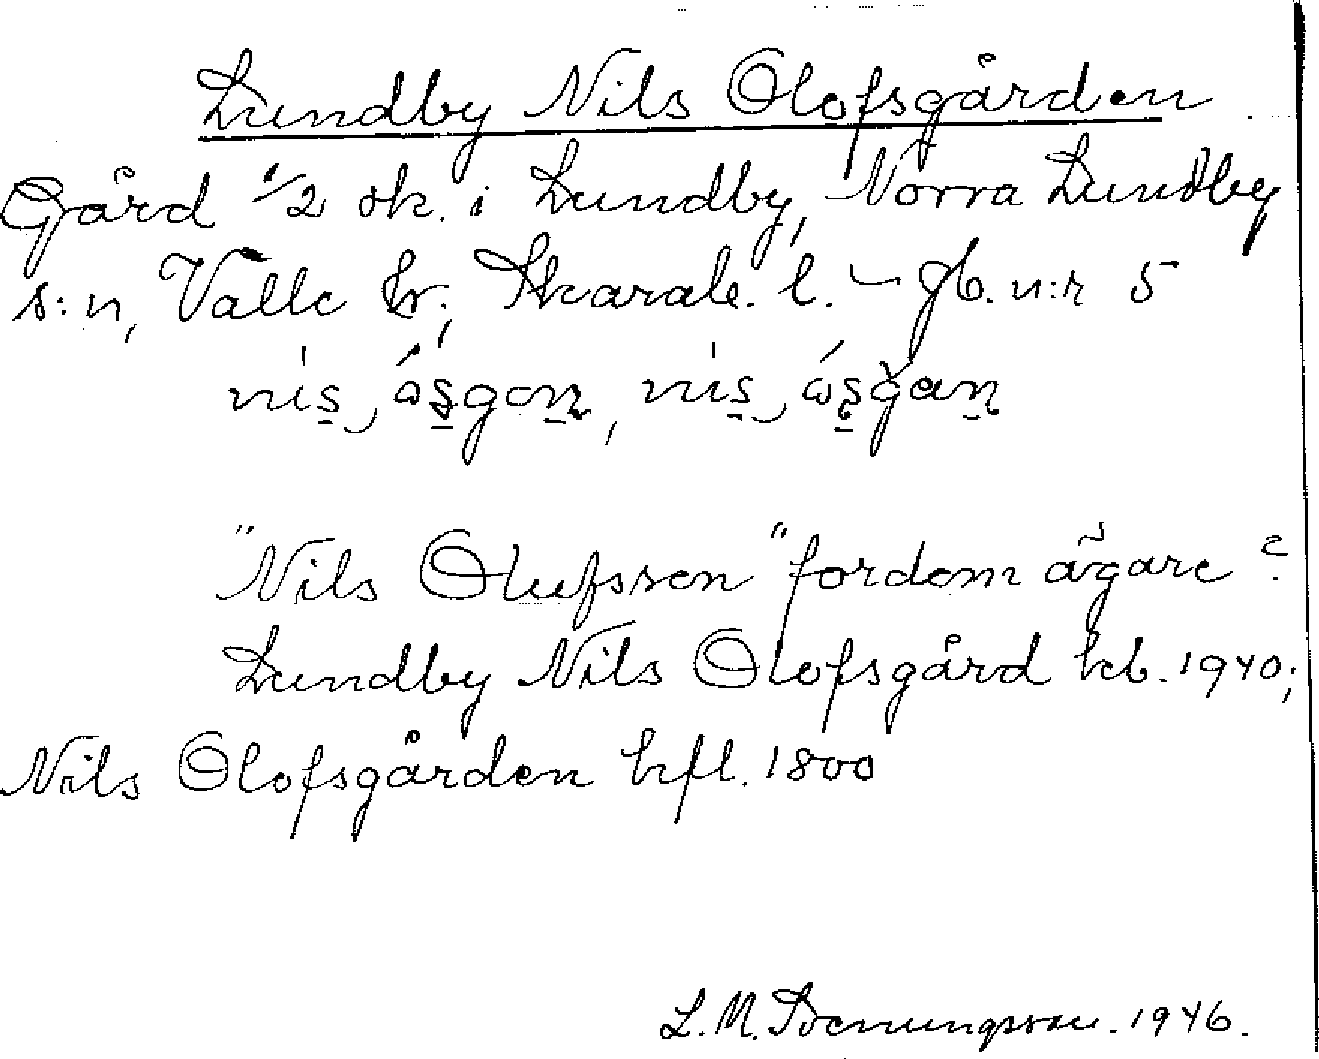 Lundby Nils Olofsgården
Gård 1/2 sk. i Lundby, Norra Lundby
s:n, Valle hr; Skarab. l. – Jb. n:r 5
"Nils Olufsson" fordom ägare?
Lundby Nils Olofsgård kb. 1940;
Nils Olofsgården hfl. 1800
L. M. Svenungsson. 1946.